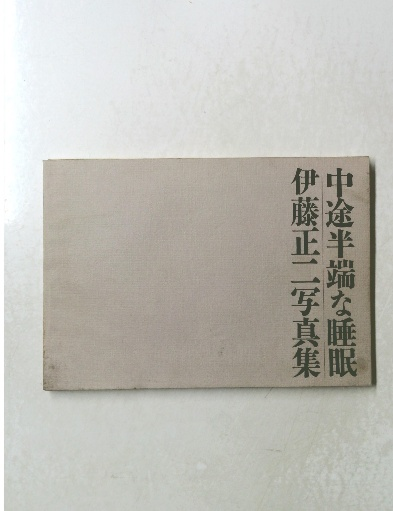 中途半端な睡眠
伊藤正二写真集